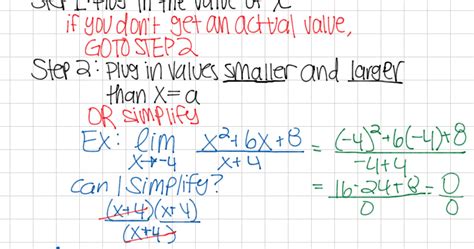 Step 1: Plug in the value of x
if you don't get an actual value,
GOTO STEP 2
Step 2: Plug in values smaller and larger
than x=a
OR simplify
Ex: lim x→-4 x²+6x+8 / x+4 = (-4)²+6(-4)+8 / -4+4
can I simplify? = 16-24+8 / 0 = 0 / 0
(x+4)(x+4) / (x+4)